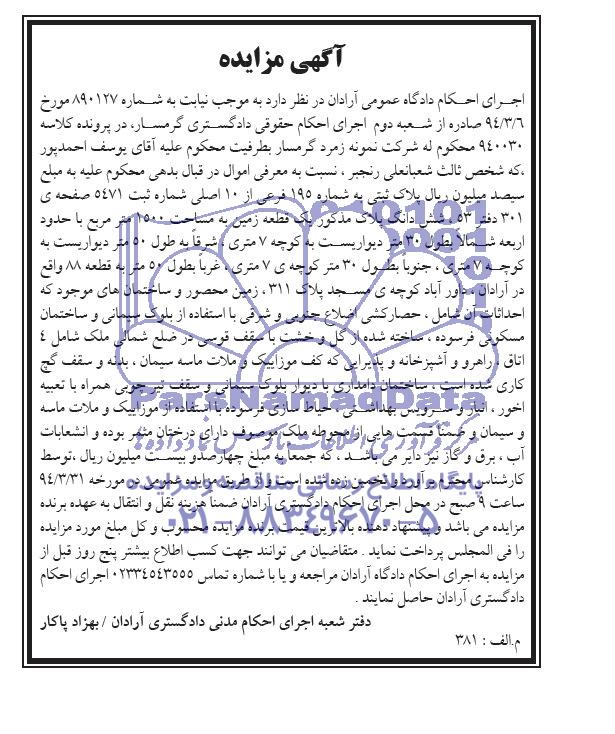 آگهی مزایده
اجـرای احـکام دادگاه عمومی آرادان در نظر دارد به موجب نیابت به شماره ۸۹۰۱۲۷ مورخ
۹۴/۳/۶ صادره از شـعبه دوم اجرای احکام حقوقی دادگستری گرمسـار، در پرونده کلاسه
۹۴۰۰۳۰ محکوم له شرکت نمونه زمرد گرمسار بطرفیت محکوم علیه آقای یوسف احمدپور
،که شخص ثالث شعبانعلی رنجبر ، نسبت به معرفی اموال در قبال بدهی محکوم علیه به مبلغ
سیصد میلیون ریال پلاک ثبتی به شماره ۱۹۵ فرعی از ۱۰ اصلی شماره ثبت ۵۴۷۱ صفحه ی
۳۰۱ دفتر ۵۳ ، شش دانگ پلاک مذکور یک قطعه زمین به مساحت ۱۵۰۰ متر مربع با حدود
اربعه شـمالاً بطول ۳۰ متر دیواریسـت به کوچه ۷ متری ، شرقاً به طول ۵۰ متر دیواریست به
کوچـه ۷ متری ، جنوبا بطـول ۳۰ متر کوچه ی ۷ متری ، غرباً بطول ۵۰ متر به قطعه ۸۸ واقع
در آرادان ، داور آباد کوچه ی مسـجد پلاک ۳۱۱ ، زمین محصور و ساختمان های موجود که
احداثات آن شامل ، حصارکشی اضلاع جنوبی و شرقی با استفاده از بلوک سیمانی و ساختمان
مسکونی فرسوده ، ساخته شده از گل و خشت با سقف قوسی در ضلع شمالی ملک شامل ۴
اتاق ، راهرو و آشپزخانه و پذیرایی که کف موزاییک و ملات ماسه سیمان ، بدنه و سقف گچ
کاری شده است ، ساختمان دامداری با دیوار بلوک سیمانی و سقف تیرچوبی همراه با تعبیه
اخور ، انبار و سـرویس بهداشـتی ، حیاط سازی فرسوده با استفاده از موزاییک و ملات ماسه
و سیمان و ضمناً قسمت هایی از محوطه ملک موصوف دارای درختان مثمر بوده و انشعابات
آب ، برق و گاز نیز دایر می باشـد ، که جمعاً به مبلغ چهارصدو بیسـت میلیون ریال ،توسط
کارشناس محترم برآورد و تخمین زده شده است و از طریق مزایده عمومی در مورخه ۹۴/۳/۳۱
ساعت ۹ صبح در محل اجرای احکام دادگستری آرادان ضمنا هزینه نقل و انتقال به عهده برنده
مزایده می باشد و پیشنهاد دهنده بالاترین قیمت برنده مزایده محسوب و کل مبلغ مورد مزایده
را فی المجلس پرداخت نماید . متقاضیان می توانند جهت کسب اطلاع بیشتر پنج روز قبل از
مزایده به اجرای احکام دادگاه آرادان مراجعه و یا با شماره تماس ۰۲۳۳۴۵۴۳۵۵۵ اجرای احکام
دادگستری آرادان حاصل نمایند .
دفتر شعبه اجرای احکام مدنی دادگستری آرادان / بهزاد پاکار
م.الف : ۳۸۱
ParsNamadData
پایگاه اطلاع رسانی مناقصه و مزایده
۰۲۱-۸۸۳۴۹۶۷۰-۵